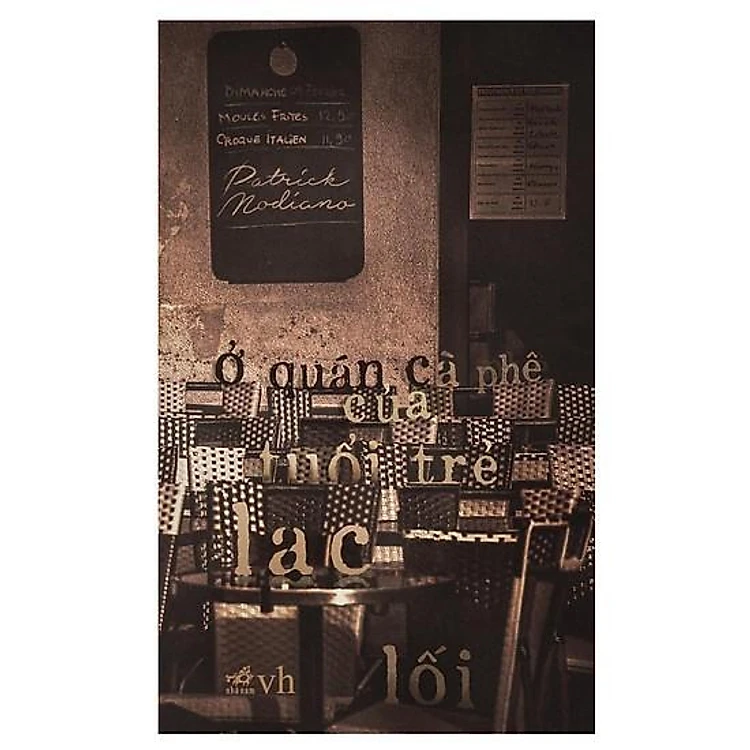 DIMANCHE
MOULES FRITES 12,50
CROQUE ITALIEN 11,90
Patrick
Modiano
Ở quán cà phê
của
tuổi trẻ
lạc
lối
nhã nam vh